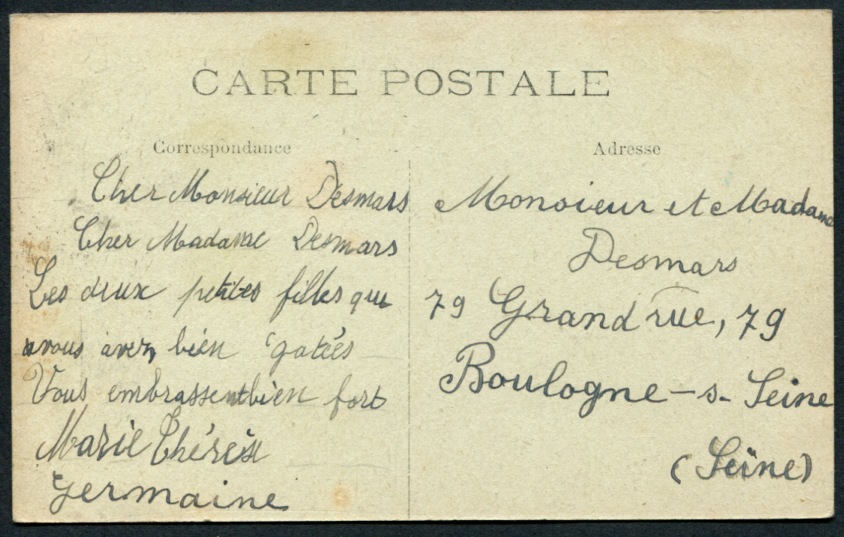 CARTE POSTALE
Correspondance
Cher Monsieur Desmars
Cher Madame Desmars
Les deux petites filles que
vous avez bien gatées
Vous embrassent bien fort
Marie Thérèse
Germaine
Adresse
Monsieur et Madame
Desmars
79 Grand rue, 79
Boulogne-s-Seine
(Seine)